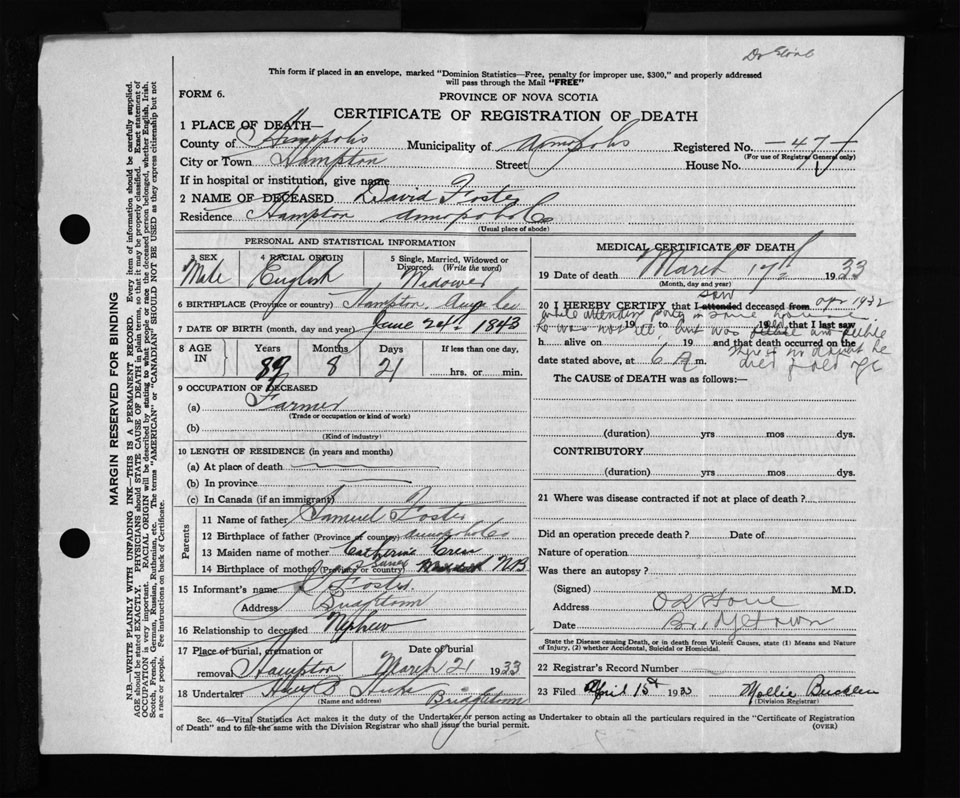 Dr
This form if placed in an envelope, marked "Dominion Statistics—Free, penalty for improper use, $300," and properly addressed
will pass through the Mail "FREE"
FORM 6.
PROVINCE OF NOVA SCOTIA
CERTIFICATE OF REGISTRATION OF DEATH
1 PLACE OF DEATH—
County of Annapolis Municipality of Annapolis Registered No. —47—
(For use of Registrar General only)
City or Town Hampton Street House No.
If in hospital or institution, give name
2 NAME OF DECEASED David Foster
Residence Hampton Annapolis Co
(Usual place of abode)
PERSONAL AND STATISTICAL INFORMATION
3 SEX 4 RACIAL ORIGIN 5 Single, Married, Widowed or Divorced. (Write the word)
Male English Widower
6 BIRTHPLACE (Province or country) Hampton, Anna Co
7 DATE OF BIRTH (month, day and year) June 24th 1843
8 AGE IN Years Months Days If less than one day,
89 8 21 hrs. or min.
9 OCCUPATION OF DECEASED
(a) Farmer
(Trade or occupation or kind of work)
(b)
(Kind of industry)
10 LENGTH OF RESIDENCE (in years and months)
(a) At place of death
(b) In province
(c) In Canada (if an immigrant)
Parents
11 Name of father Samuel Foster
12 Birthplace of father (Province or country) Annapolis Co
13 Maiden name of mother Catherine
14 Birthplace of mother (Province or country) NB
15 Informant's name Foster
Address Bridgetown
16 Relationship to deceased Nephew
17 Place of burial, cremation or removal Hampton Date of burial March 21 1933
18 Undertaker Bridgetown
(Name and address)
MEDICAL CERTIFICATE OF DEATH
19 Date of death March 17th 1933
(Month, day and year)
saw
20 I HEREBY CERTIFY that I attended deceased from Apr 1932
while attending party in same house
He was not ill but was feeble and feeble
19 to 19 that I last saw
h. alive on , 19 and that death occurred on the
date stated above, at 6 A m.
There is no doubt he
died of old age
The CAUSE OF DEATH was as follows:—
(duration) yrs mos dys.
CONTRIBUTORY
(duration) yrs mos dys.
21 Where was disease contracted if not at place of death?
Did an operation precede death? Date of
Nature of operation
Was there an autopsy?
(Signed) M.D.
Address
Date Bridgetown
State the Disease causing Death, or in death from Violent Causes, state (1) Means and Nature
of Injury, (2) whether Accidental, Suicidal or Homicidal.
22 Registrar's Record Number
23 Filed April 15th 1933 Mollie
(Division Registrar)
Sec. 46—Vital Statistics Act makes it the duty of the Undertaker or person acting as Undertaker to obtain all the particulars required in the "Certificate of Registration
of Death" and to file the same with the Division Registrar who shall issue the burial permit.
(OVER)
MARGIN RESERVED FOR BINDING
N.B.—WRITE PLAINLY WITH UNFADING INK—THIS IS A PERMANENT RECORD. Every item of information should be carefully supplied.
AGE should be stated EXACTLY. PHYSICIANS should STATE CAUSE OF DEATH in plain terms, so that it may be properly classified. Exact statement of
OCCUPATION is very important. RACIAL ORIGIN will be described by stating to what people or race the deceased person belonged, whether English, Irish,
Scotch, French, German, Russian, Ruthenian, etc. The terms "AMERICAN" or "CANADIAN" SHOULD NOT BE USED as they express citizenship but not
a race or people. Fee instructions on back of Certificate.